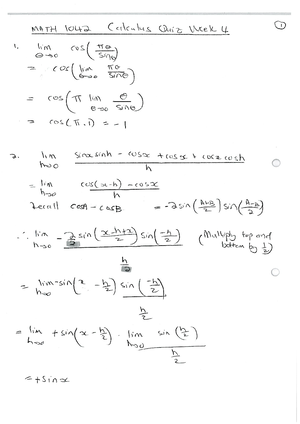 MATH 1042 Calculus Quiz Week 4
1
1. lim θ→0 cos(πθ/sinθ)
= cos(lim θ→0 πθ/sinθ)
= cos(π lim θ→0 θ/sinθ)
= cos(π.1) = -1
2. lim h→0 sinx sinh - cosx + cosx cosh / h
= lim h→0 cos(x-h) - cosx / h
Recall cosA - cosB = -2sin(A+B/2) sin(A-B/2)
∴ lim h→0 -2sin(x-h+x/2) sin(-h/2) / h (Multiply top and bottom by 1/2)
= lim h→0 -sin(x - h/2) sin(-h/2) / h/2
= lim h→0 +sin(x - h/2) . lim h→0 sin(h/2) / h/2
= +sinx